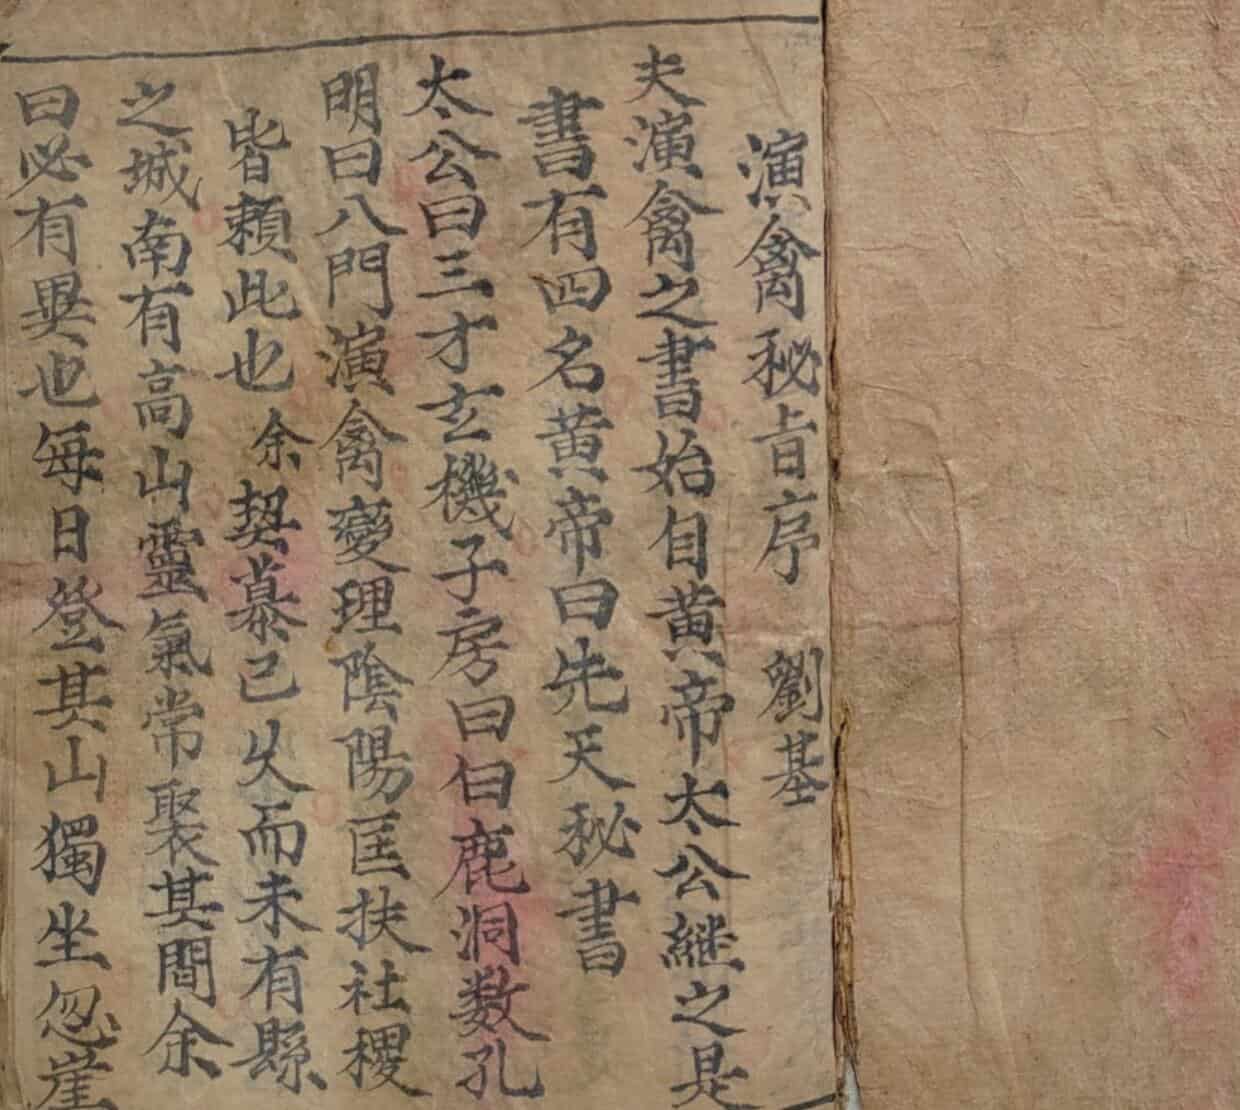 演禽秘旨序 劉基
夫演禽之書始自黃帝太公継之是
書有四名黃帝曰先天秘書
太公曰三才玄機子房曰白鹿洞数孔
明曰八門演禽變理陰陽匡扶社稷
皆賴此也余契慕已久而未有縣
之城南有高山靈氣常聚其間余
曰必有異也每日登其山獨坐忽崖